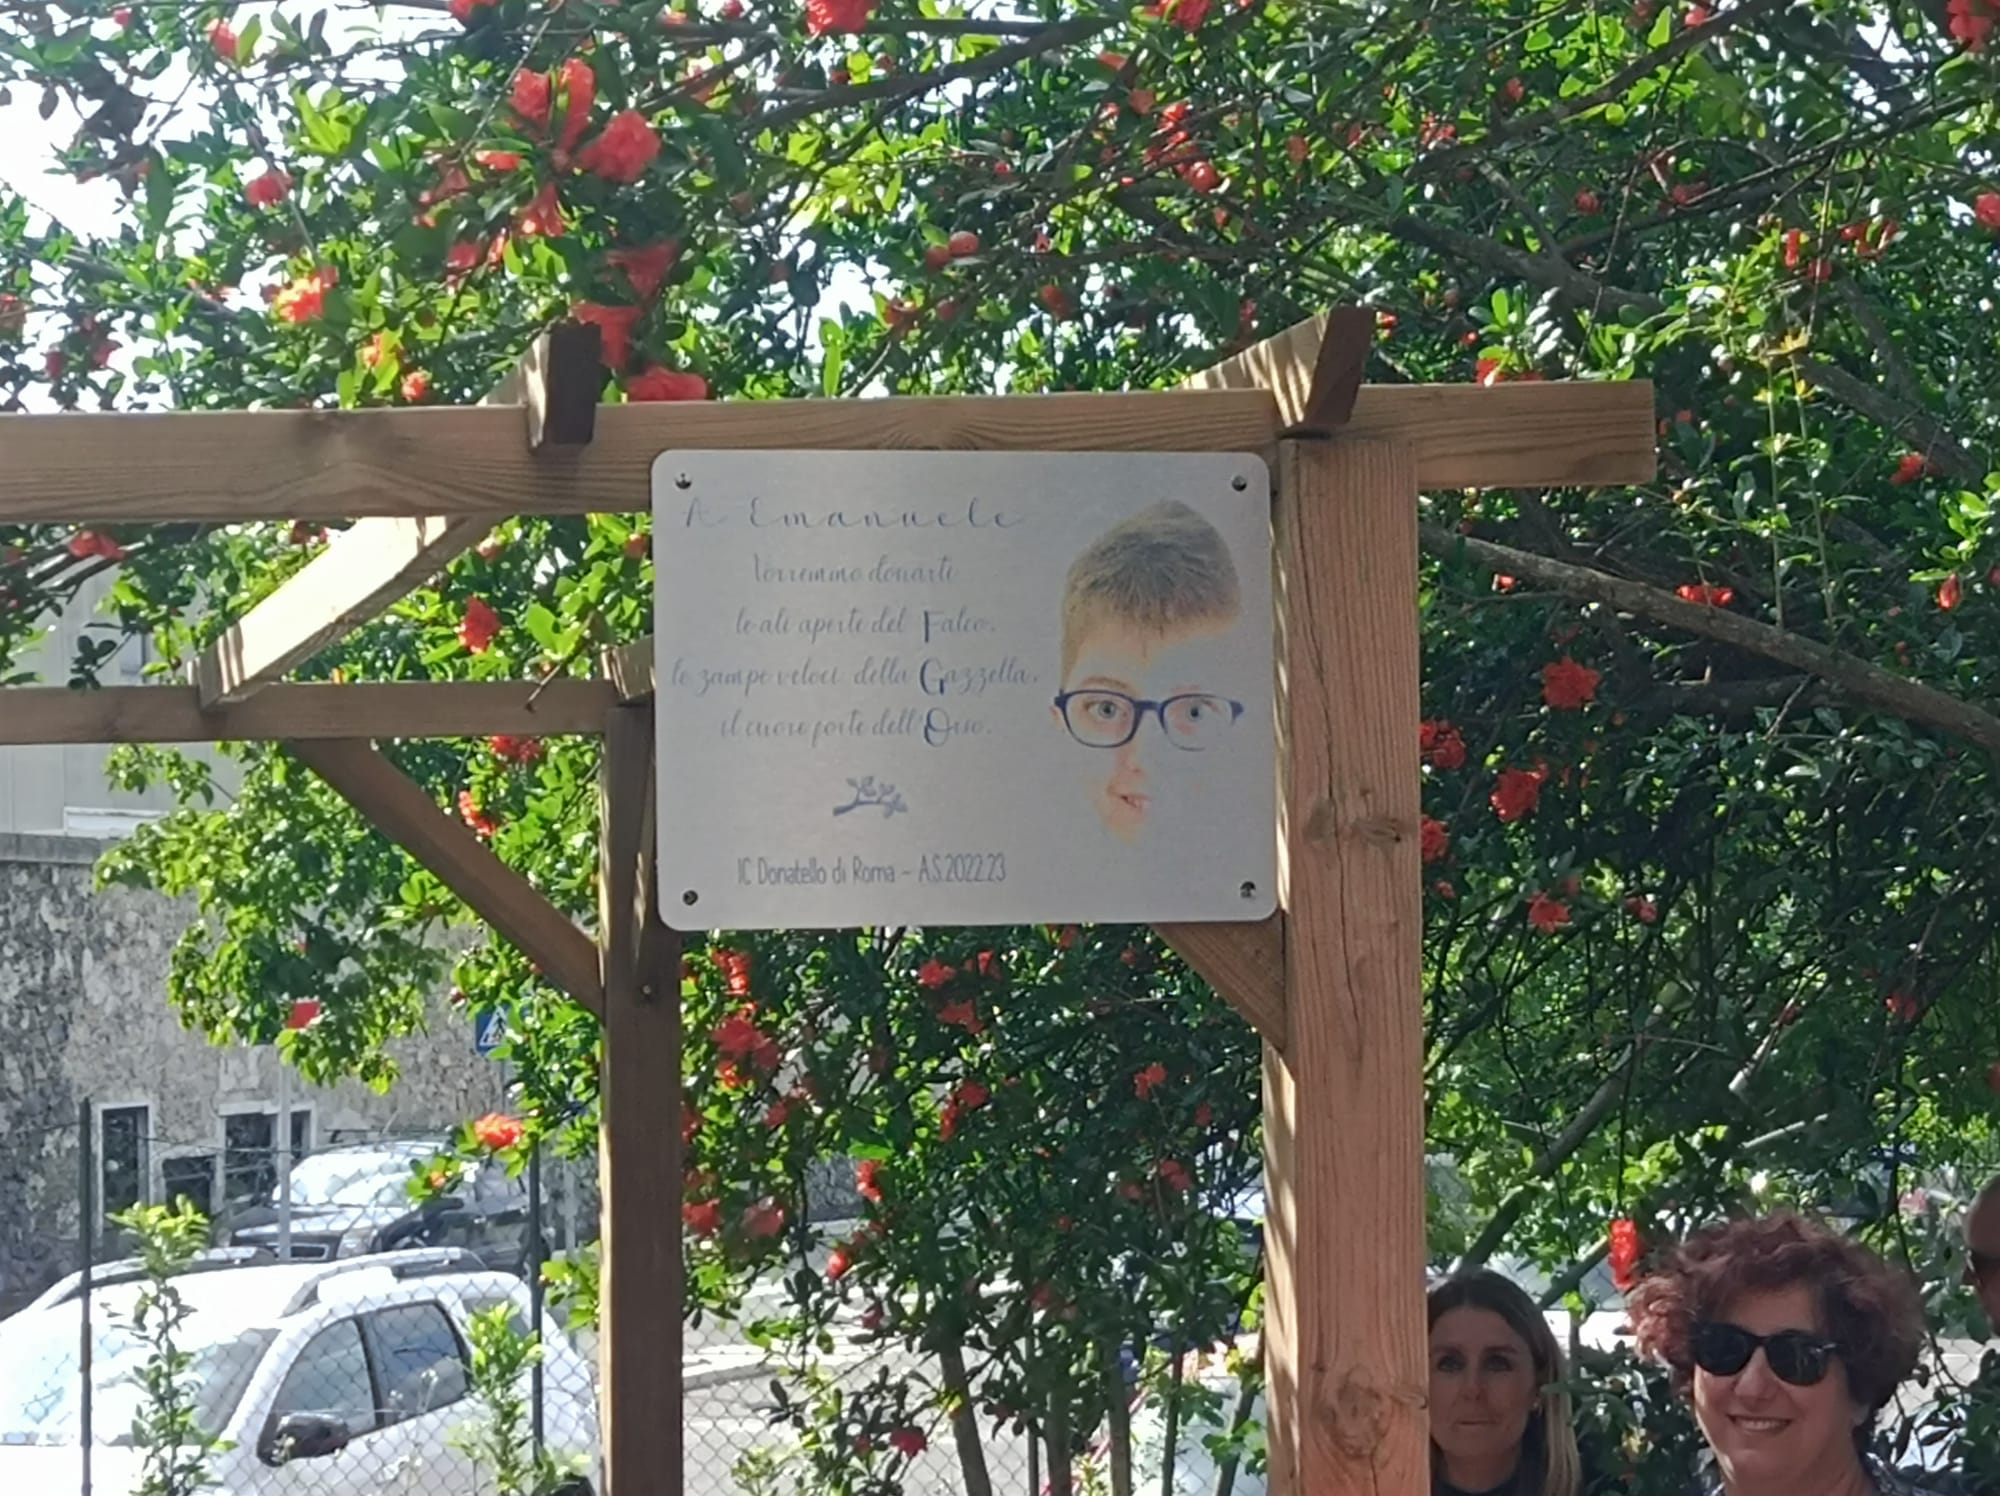 A Emanuele
Vorremmo donarti
le ali aperte del Falco,
le zampe veloci della Gazzella,
il cuore forte dell'Orso.
IC Donatello di Roma - A.S.2022.23